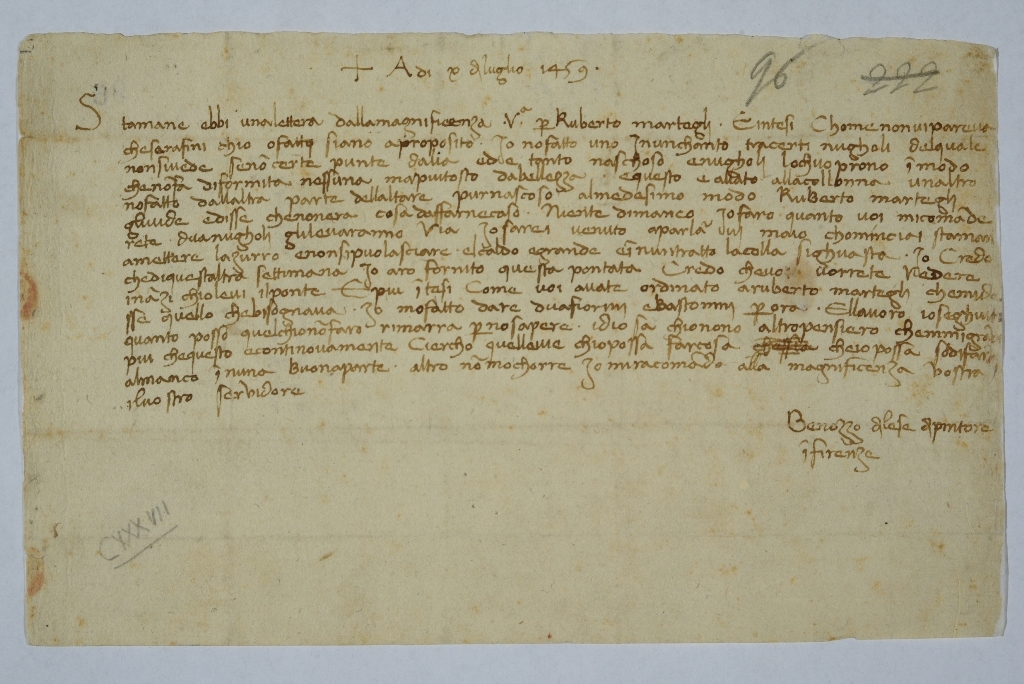 + A di x di luglio 1459 ·
96
222
Stamane ebbi una lettera dalla magnificenza V.ª p Ruberto martegli · E intesi Chome non vi pareva
che serafini chio o fatto siano a proposito · Io no fatto uno Inunchanto tra certi nugholi del quale
non si vede se nō certe punte dalia ed e tanto naschoso e nugholi lo chuoprono ī modo
che no fa diformita nessuna ma piutosto da bellezza · e questo e allato alla collonna unaltro
no fatto dallaltra parte dellaltare pur nascoso al medesimo modo Ruberto martegli
gli vide e disse che non era cosa da ffarne caso · Niente di maneo Io faro quanto voi mi comāde
rete · dua nugholi gli levaranno via Io sarei venuto a parla vi ma io chominciai stamani
a mettere lazurro e non si puo lasciare · el caldo e grande e in un tratto la colla si ghuasta · Io Credo
che di questaltra settimana Io aro fornito questa pontata Credo che voi vorrete vedere
inazi chio levi il ponte E piu ītesi Come voi avate ordinato a ruberto martegli che mi de
sse quello che bisognava · Io mo fatto dare dua fiorini e bastonmi p ora · El lavoro io seghuito
quanto posso quel chio no faro rimarra p no sapere · idio sa chio no no altro pensiero che mmi gravi
piu che questo e continovamente Ciercho quelle vie chio possa far cosa che io possa sodisfarvi
al manco ī una buona parte · altro nō mochorre Io mi racomādo alla magnificenza vostra
il vostro servidore
Benozzo di lese dipintore
ī firenze
CXXXVII